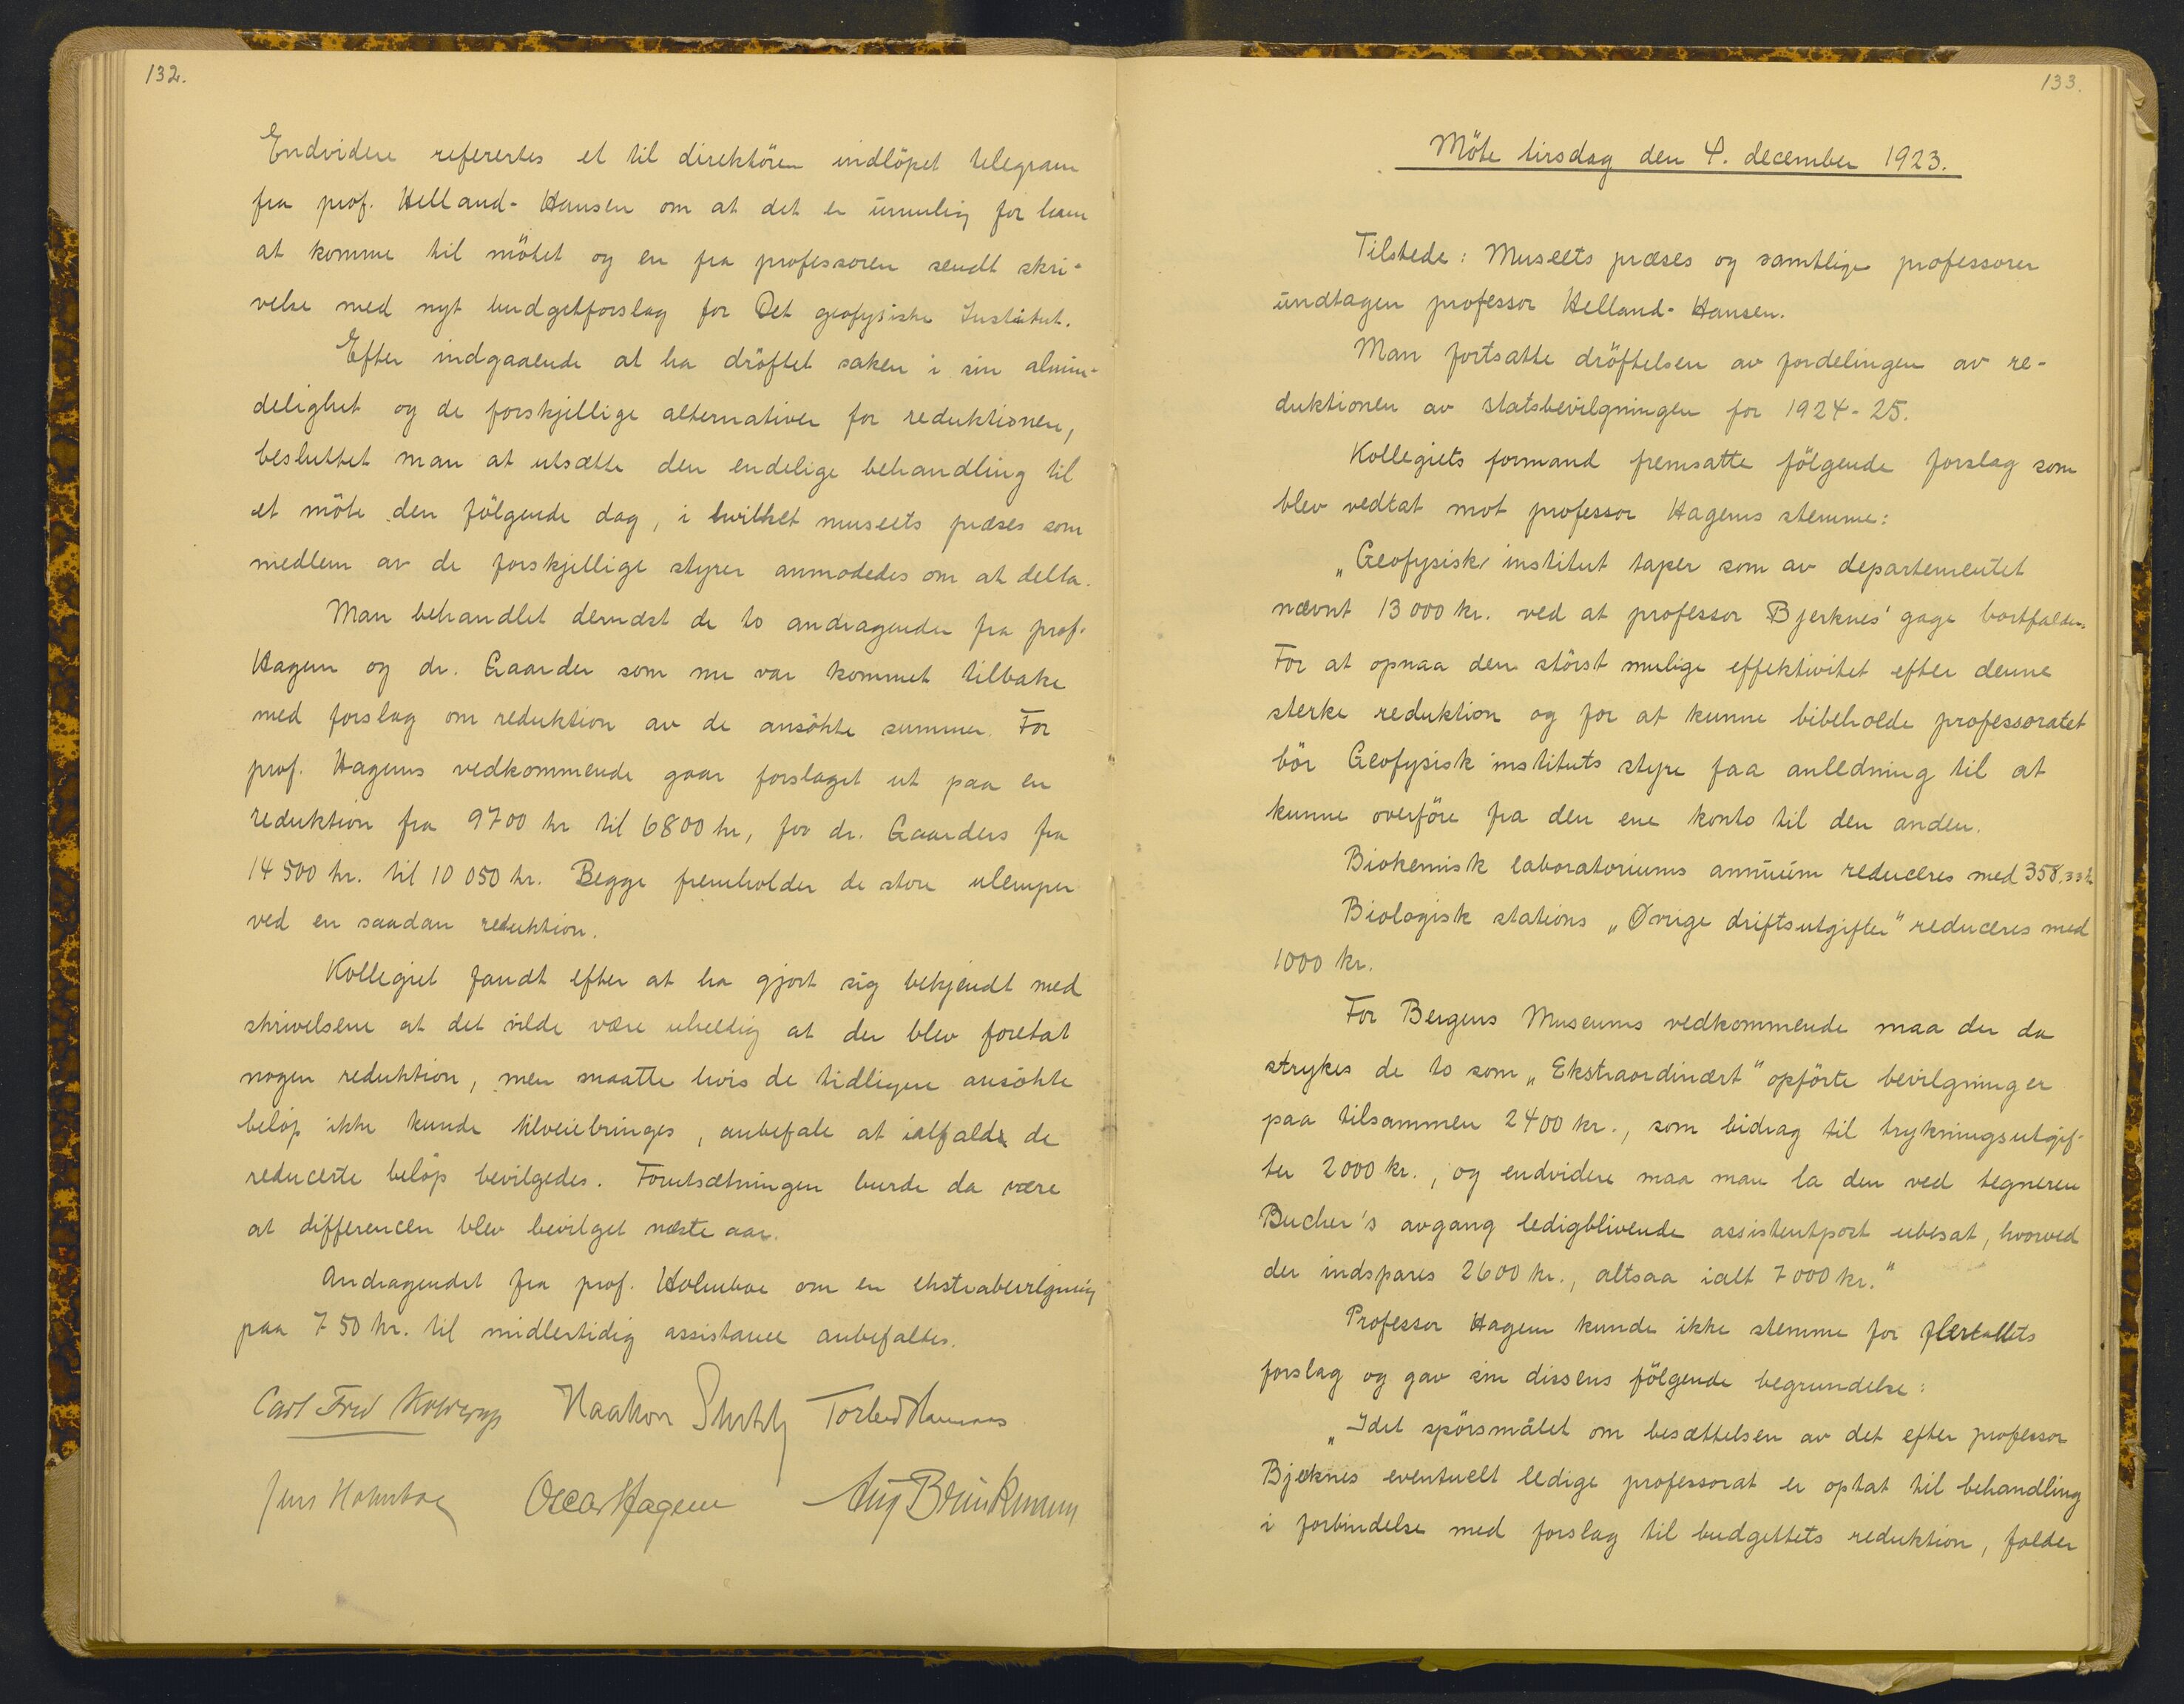 132.
Endvidere refereertes et til direktören indlöpet telegram
fra prof. Helland-Hansen om at det er umulig for ham
at komme til mötet og en fra professoren sendt skri-
velse med nyt budgetforslag for Det geofysiske Institut.
Efter indgaaende at ha dröftet saken i sin almin-
delighet og de forskjellige alternativer for reduktionen,
besluttet man at utsætte den endelige behandling til
et möte den fölgende dag, i hvilket museets præses som
medlem av de forskjellige styrer anmodedes om at delta.
Man behandlet dernæst de to andragender fra prof.
Hagem og dr. Gaarder som nu var kommet tilbake
med forslag om reduktion av de ansökte summer. For
prof. Hagems vedkommende gaar forslaget ut paa en
reduktion fra 9700 kr til 6800 kr, for dr. Gaarders fra
14 500 kr. til 10 050 kr. Begge fremholder de store ulemper
ved en saadan reduktion.
Kollegiet fandt efter at ha gjort sig bekjendt med
skrivelsene at det vilde være uheldig at der blev foretat
nogen reduktion, men maatte hvis de tidligere ansökte
belöp ikke kunde tilveiebringes, anbefale at ialfald de
reducerte belöp bevilgedes. Forutsætningen burde da være
at differencen blev bevilget næste aar.
Andragendet fra prof. Holmboe om en ekstrabevilgning
paa 750 kr. til midlertidig assistance anbefaltes.
Carl Fred Kolderup Haakon Shetelig Torleiv Hannaas
Jens Holmboe Oscar Hagem Aug Brinkmann
133.
Möte tirsdag den 4. december 1923.
Tilstede: Museets præses og samtlige professorer
undtagen professor Helland-Hansen.
Man fortsatte dröftelsen av fordelingen av re-
duktionen av statsbevilgningen for 1924-25.
Kollegiets formand fremsatte fölgende forslag som
blev vedtat mot professor Hagems stemme:
„Geofysisk institut taper som av departementet
nævnt 13 000 kr. ved at professor Bjerknes' gage bortfalder.
For at opnaa den störst mulige effektivitet efter denne
sterke reduktion og for at kunne bibeholde professoratet
bör Geofysisk instituts styre faa anledning til at
kunne overföre fra den ene konto til den anden.
Biokemisk laboratoriums annuum reduceres med 358.33 kr
Biologisk stations „Øvrige driftsutgifter" reduceres med
1000 kr.
For Bergens Museums vedkommende maa der da
strykes de to som „Ekstraordinært" opförte bevilgninger
paa tilsammen 2400 kr., som bidrag til trykningsutgif-
ter 2000 kr., og endvidere maa man la den ved tegneren
Bucher's avgang ledigblivende assistentpost ubesat, hvorved
der indspares 2600 kr., altsaa ialt 7000 kr."
Professor Hagem kunde ikke stemme for flertallets
forslag og gav sin dissens fölgende begrundelse:
„Idet spörsmålet om besættelsen av det efter professor
Bjerknes eventuelt ledige professorat er optat til behandling
i forbindelse med forslag til budgettets reduktion, falder